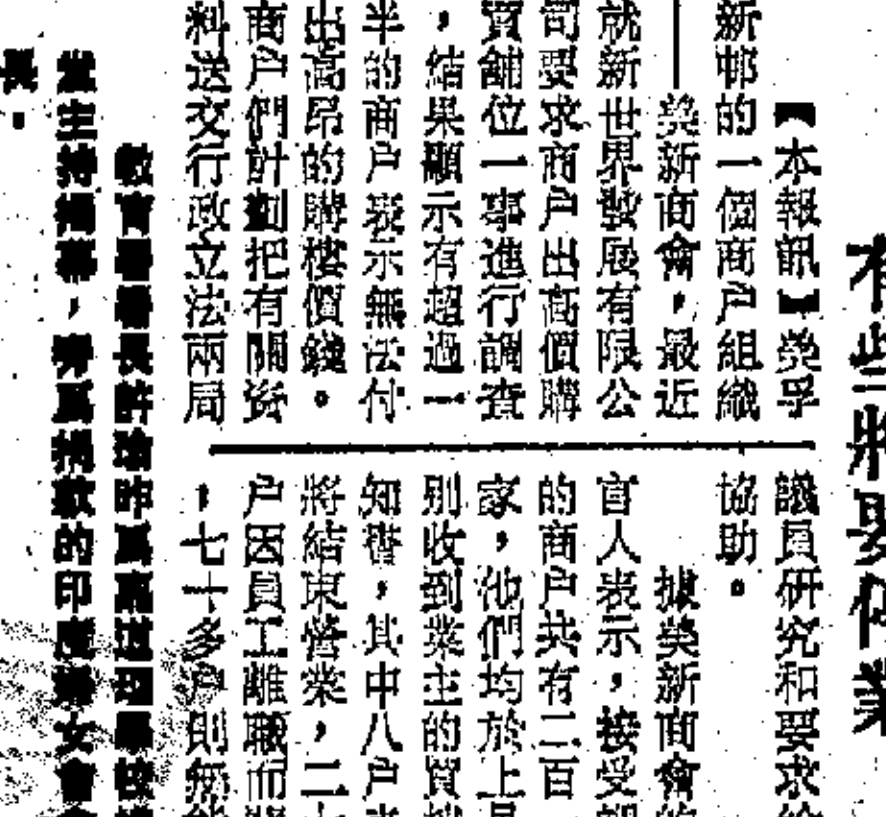 有些將要休業
【本報訊】美孚
新邨的一個商户組織
——美新商會,最近
就新世界發展有限公
司要求商户出高價購
買鋪位一事進行調查
,結果顯示有超過一
半的商户表示無法付
出高昂的購樓價錢。
商户們計劃把有關資
料送交行政立法兩局
議員研究和要求給
協助。
據美新商會的
人表示,接受
的商户共有二百
家,他們均於上
別收到業主的買
知書,其中八户
將結束營業,二
户因員工離職而
,七十多户則無能
教育署署長許瑜昨為嘉道理學校
主持揭幕,旁為捐款的印度婦女會
長。